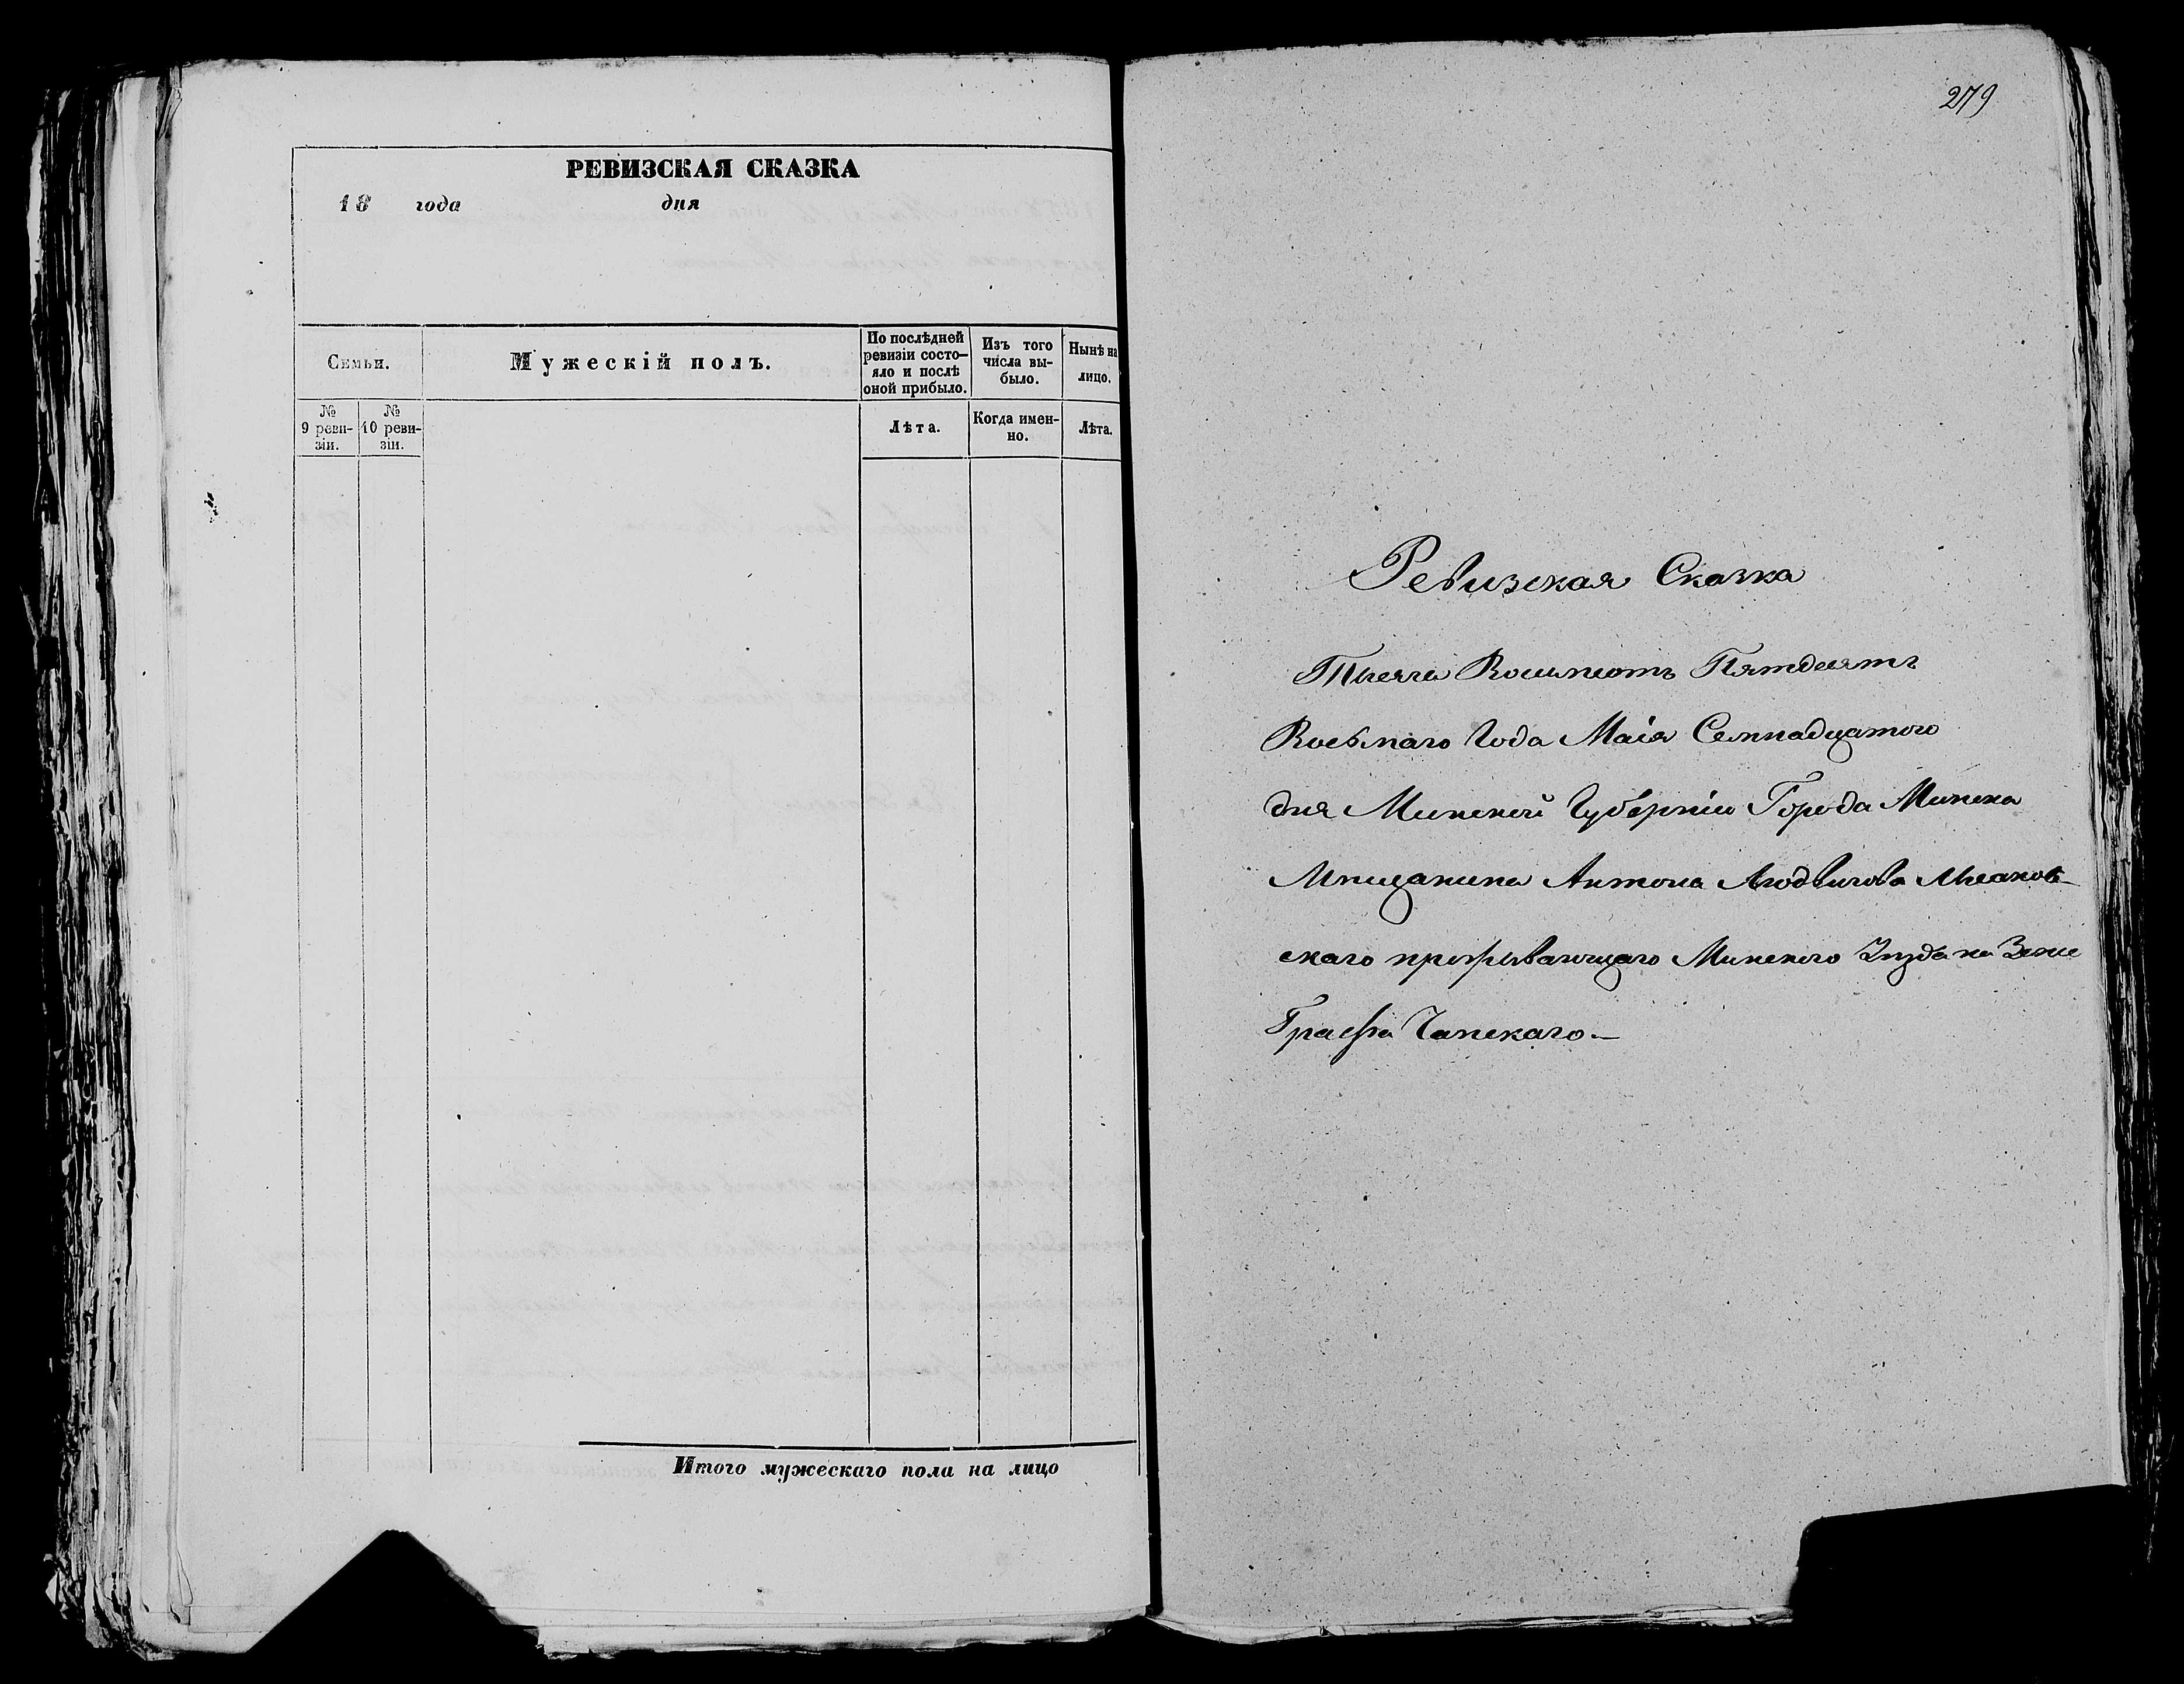 РЕВИЗСКАЯ СКАЗКА
18 года дня
Семьи.
Мужескій полъ.
По послѣдней
ревизіи состо-
яло и послѣ
оной прибыло.
Изъ того
числа вы-
было.
Нынѣ на
лицо.
№
9 реви-
зіи.
№
10 реви-
зіи.
Лѣта.
Когда имен-
но.
Лѣта.
Итого мужескаго пола на лицо
279
Ревизская Сказка
Тысяча Восемсотъ Пятдесятъ
Восьмаго Года Маія Семнадцатого
дня Минской Губерніи Города Минска
Мѣщанина Антона Людвигова
скаго проживающаго Минскаго Уѣзда на Земле
Графа Чапскаго